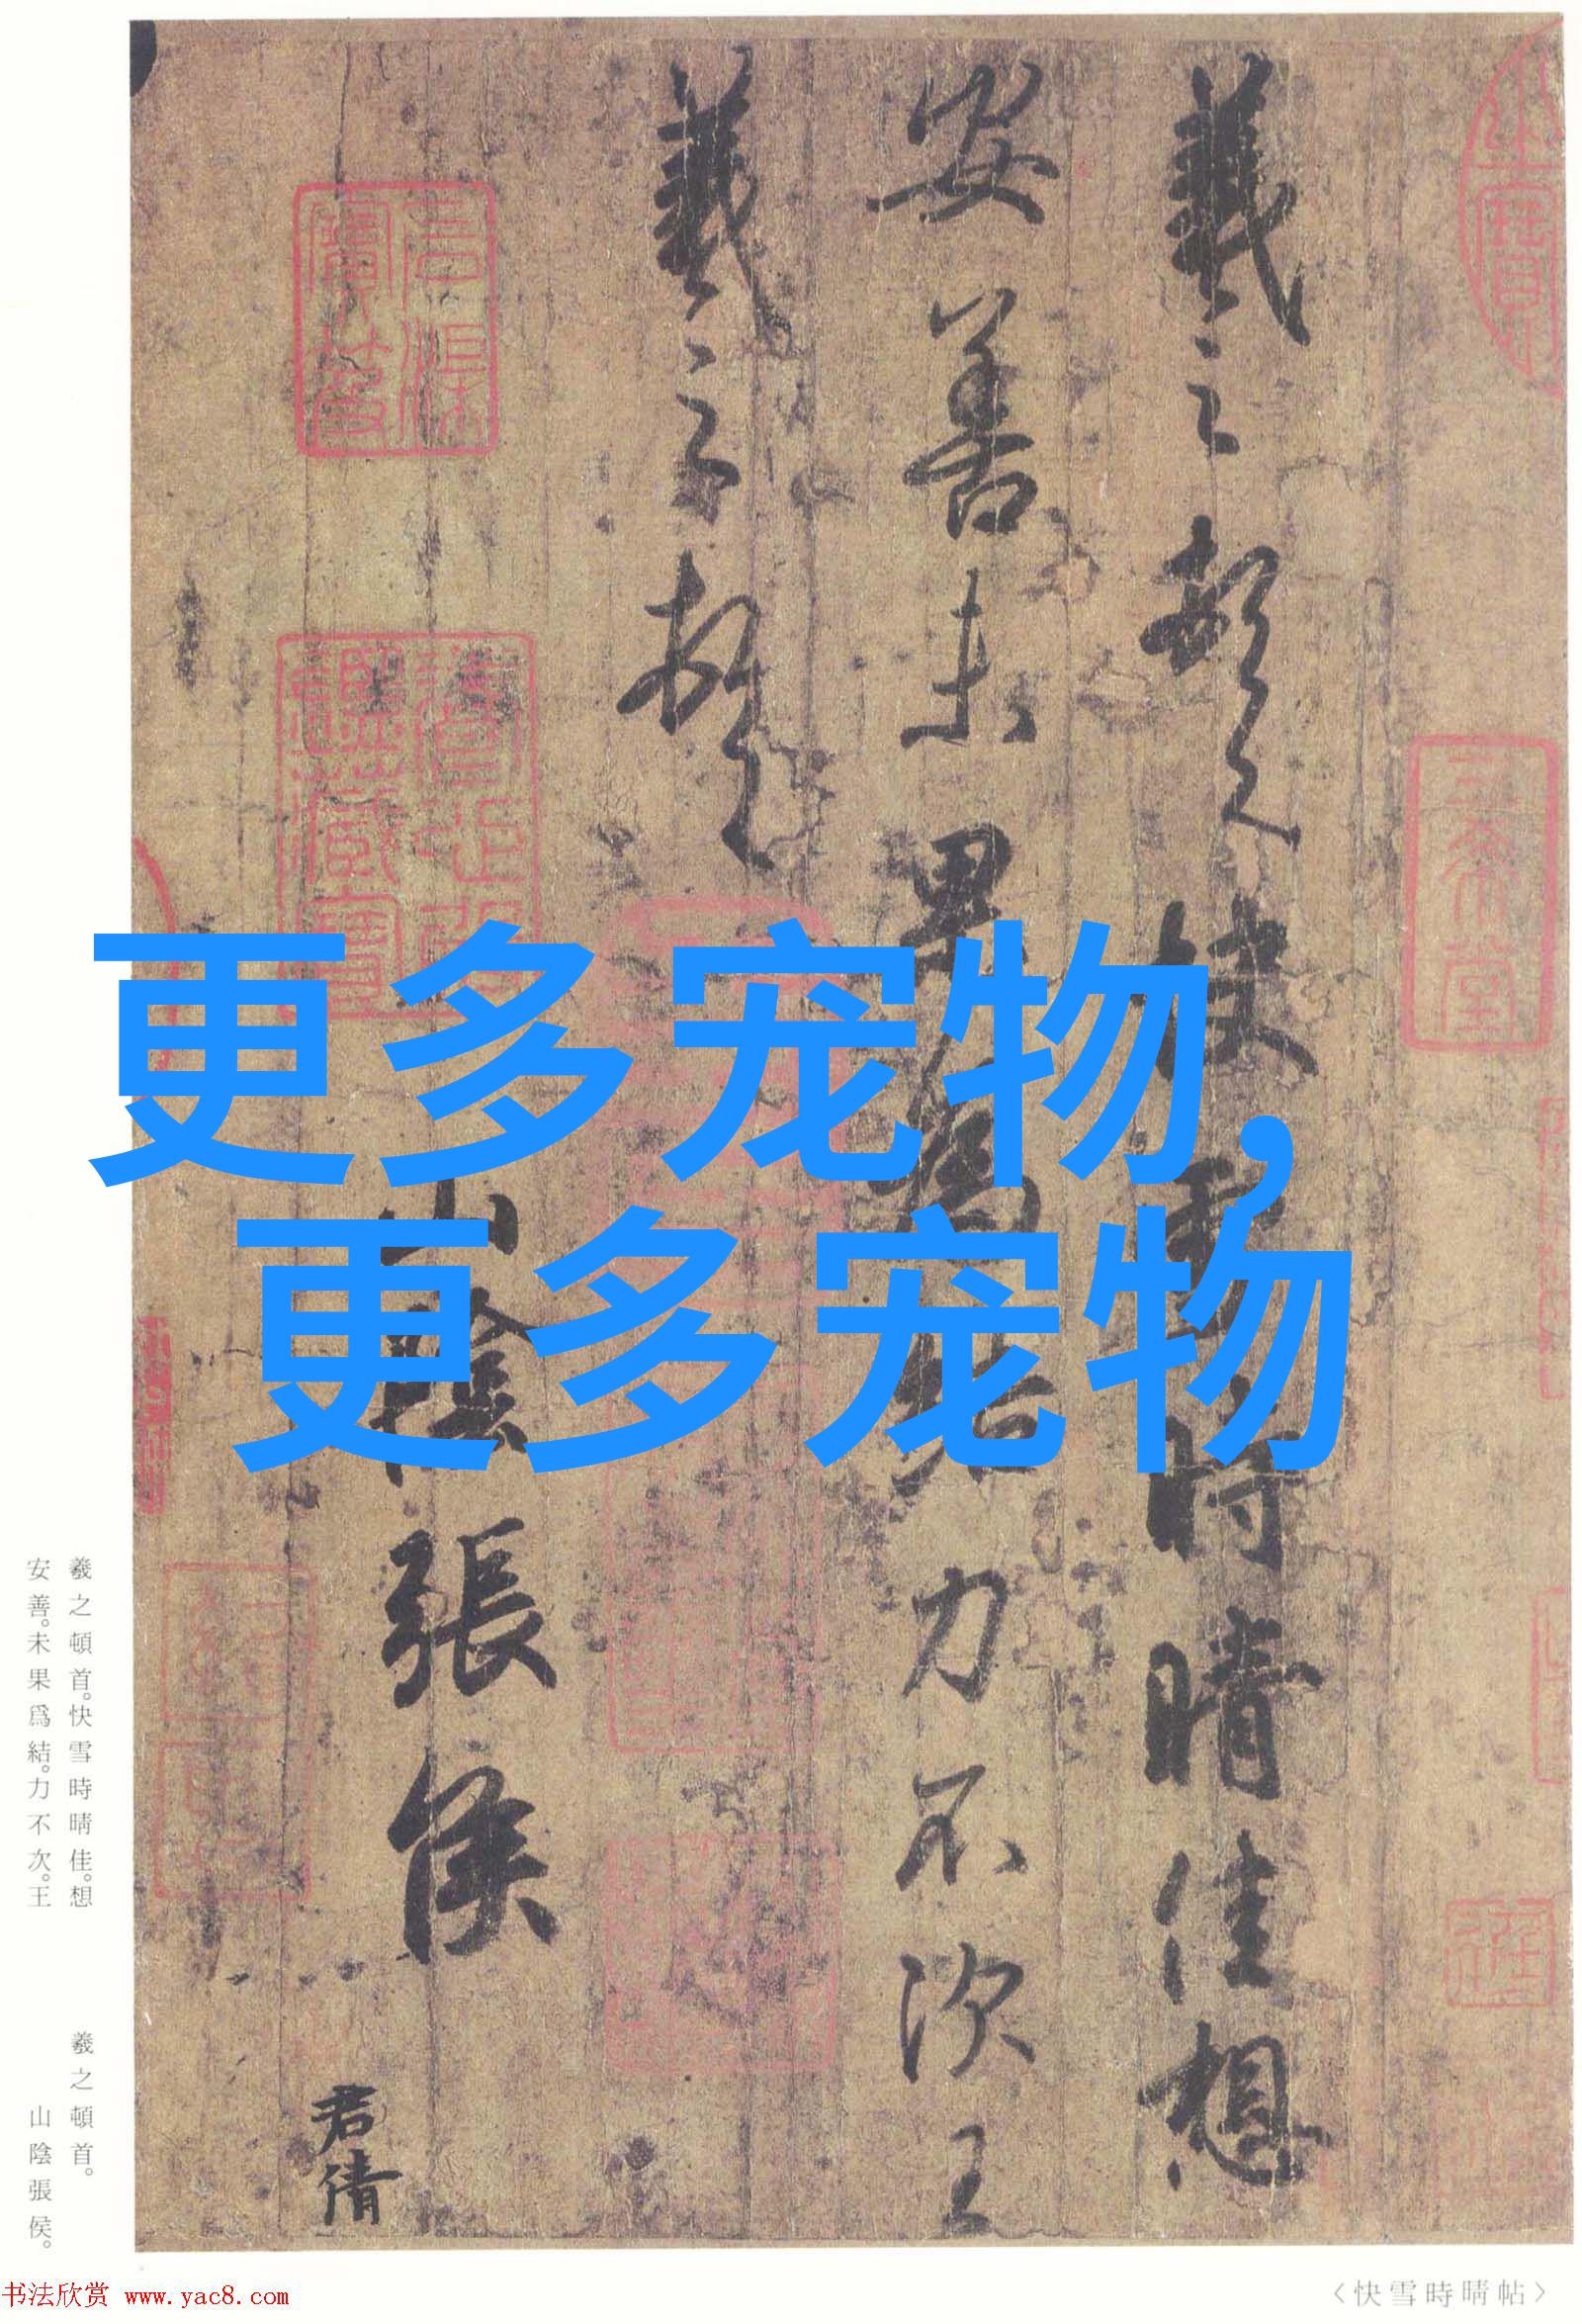 羲之頓首快雪時晴佳想
安善未果為結力不次王
羲之頓首
山陰張侯
君倩
三希堂
更多宠物,
更多宠物
羲之頓首。快雪時晴佳。想
安善。未果爲結。力不次。王
羲之頓首。
山陰張侯。
书法欣赏 www.yac8.com
〈快雪時晴帖〉